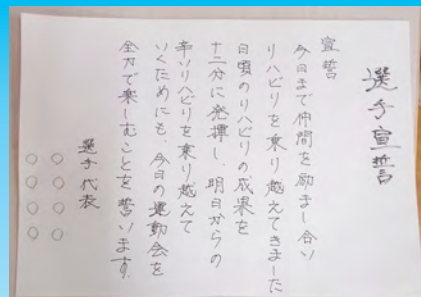 選手宣誓
宣誓
今日まで仲間を励まし合い
リハビリを乗り越えてきました
日頃のリハビリの成果を
十二分に発揮し、明日からの
辛いリハビリを乗り越えて
いくためにも、今日の運動会を
全力で楽しむことを誓います。
選手代表
○○○○
○○○○